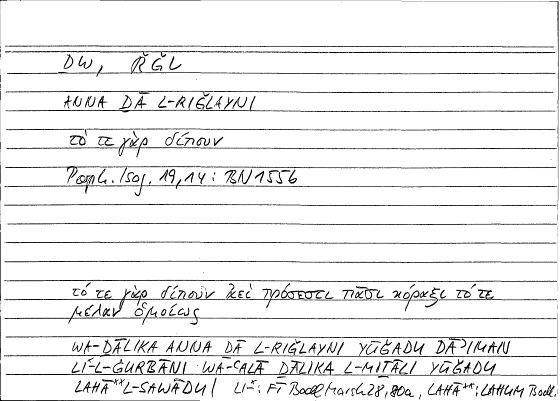 ḎW, RǦL
ANNA ḎĀ L-RIǦLAYNI
τό τε γὰρ δίπουν
Porph. Isag. 19,14 : BN 1556
τό τε γὰρ δίπουν ἀεὶ πρόσεστι πᾶσι κόραξι τό τε
μέλαν ὁμοίως
WA-ḎĀLIKA ANNA ḎĀ L-RIǦLAYNI YŪǦADU DĀʾIMAN
LI*-L-ĠURBĀNI WA-ʿALĀ ḎĀLIKA L-MIṮĀLI YŪǦADU
LAHĀ** L-SAWĀDU | LI-*: FĪ Bodl Marsh 28, 80a, LAHĀ**: LAHUM Bodl.